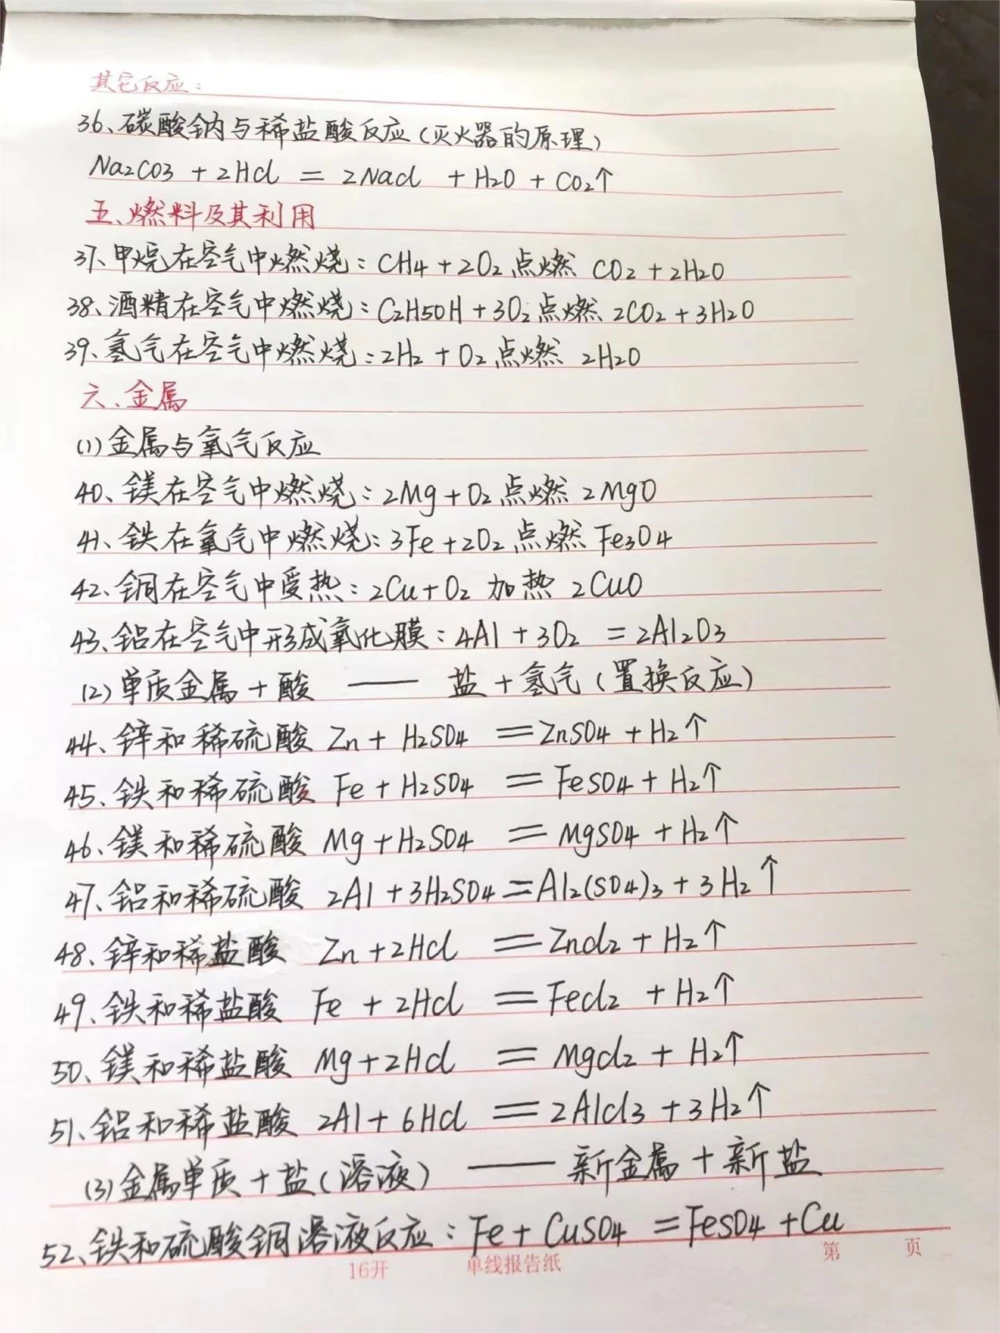 其它反应：
36、碳酸钠与稀盐酸反应(灭火器的原理)
Na2CO3 + 2HCl = 2NaCl + H2O + CO2↑
五、燃料及其利用
37、甲烷在空气中燃烧：CH4+2O2 点燃 CO2+2H2O
38、酒精在空气中燃烧：C2H5OH+3O2 点燃 2CO2+3H2O
39、氢气在空气中燃烧：2H2+O2 点燃 2H2O
六、金属
(1)金属与氧气反应
40、镁在空气中燃烧：2Mg+O2 点燃 2MgO
41、铁在氧气中燃烧：3Fe+2O2 点燃 Fe3O4
42、铜在空气中受热：2Cu+O2 加热 2CuO
43、铝在空气中形成氧化膜：4Al+3O2 =2Al2O3
(2)单质金属+酸 —— 盐+氢气(置换反应)
44、锌和稀硫酸 Zn+H2SO4 =ZnSO4+H2↑
45、铁和稀硫酸 Fe+H2SO4 =FeSO4+H2↑
46、镁和稀硫酸 Mg+H2SO4 =MgSO4+H2↑
47、铝和稀硫酸 2Al+3H2SO4=Al2(SO4)3+3H2↑
48、锌和稀盐酸 Zn+2HCl =ZnCl2+H2↑
49、铁和稀盐酸 Fe+2HCl =FeCl2+H2↑
50、镁和稀盐酸 Mg+2HCl =MgCl2+H2↑
51、铝和稀盐酸 2Al+6HCl =2AlCl3+3H2↑
(3)金属单质+盐(溶液) —— 新金属+新盐
52、铁和硫酸铜溶液反应：Fe+CuSO4 =FeSO4+Cu
16开 单线报告纸 第 页